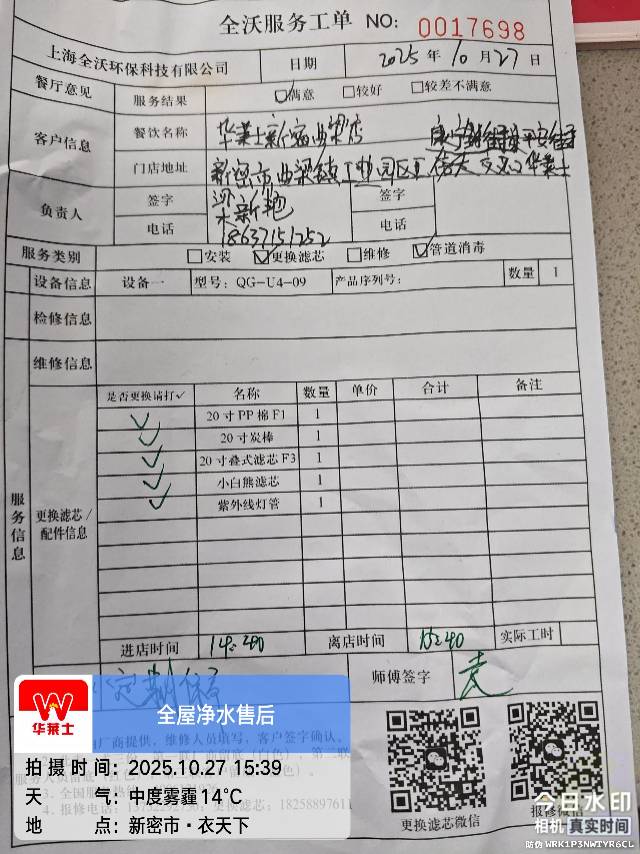 全沃服务工单 NO: 0017698
上海全沃环保科技有限公司 日期 2025年10月27日
餐厅意见 服务结果 ☑满意 □较好 □较差不满意
客户信息 餐饮名称 华莱士新密曲梁店
门店地址 新密市曲梁镇工业园区 交叉口华莱士
负责人 签字 梁新艳 签字
电话 18637151252 电话
服务类别 □安装 ☑更换滤芯 □维修 ☑管道消毒
设备信息 设备一 型号: QG-U4-09 产品序列号: 数量 1
检修信息
维修信息
服务信息
更换滤芯/配件信息
是否更换请打✓ 名称 数量 单价 合计 备注
✓ 20寸PP棉F1 1
✓ 20寸炭棒 1
✓ 20寸叠式滤芯F3 1
✓ 小白熊滤芯 1
✓ 紫外线灯管 1
进店时间 14:40 离店时间 15:40 实际工时
定期保养 师傅签字
厂商提供，维修人员填写，客户签字确认。
3. 全国服
4. 报修电话: 更换滤芯: 18258897611
更换滤芯微信 报修微信
华莱士
全屋净水售后
拍摄时间: 2025.10.27 15:39
天气: 中度雾霾 14°C
地点: 新密市·衣天下
今日水印
相机 真实时间
防伪 WRK1P3NWTYR6CL